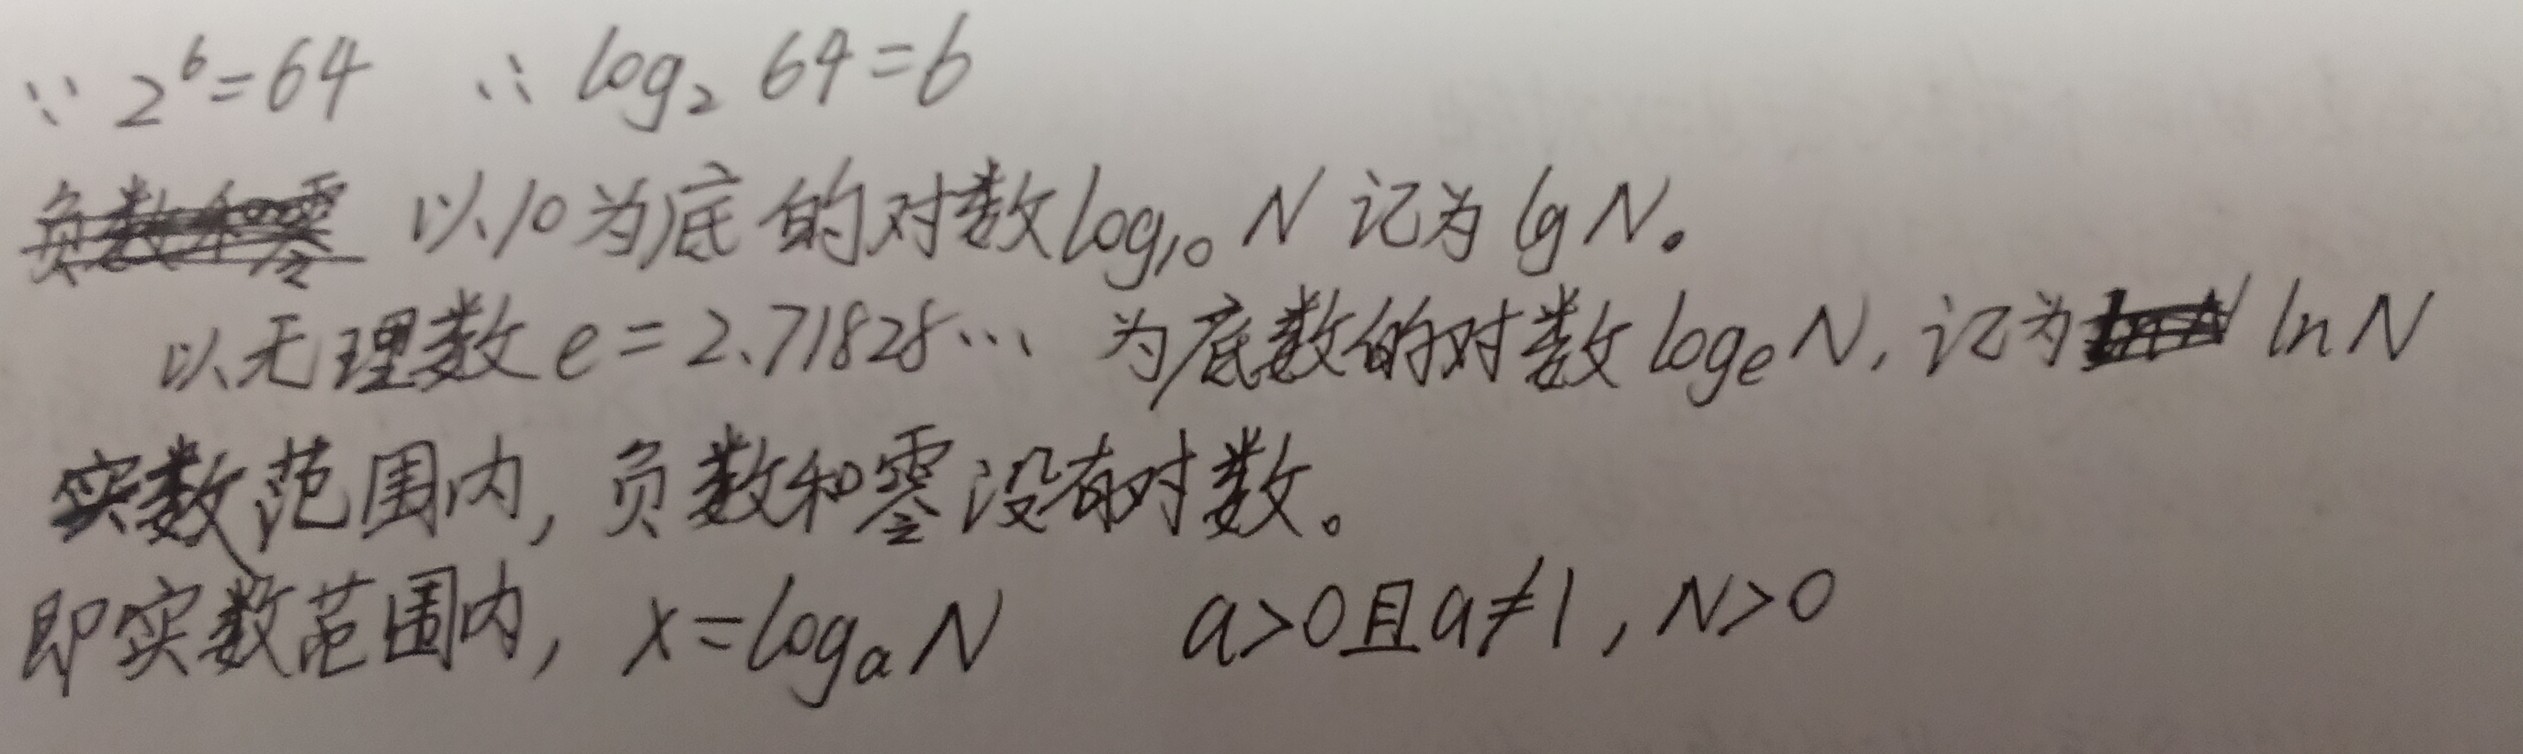 ∵ 2⁶=64 ∴ log₂ 64=6
负数和零 以10为底的对数log₁₀ N 记为 lg N。
以无理数 e=2.71828… 为底数的对数 logₑ N, 记为 ln N ln N
实数范围内, 负数和零没有对数。
即实数范围内, x=logₐ N a>0且a≠1, N>0